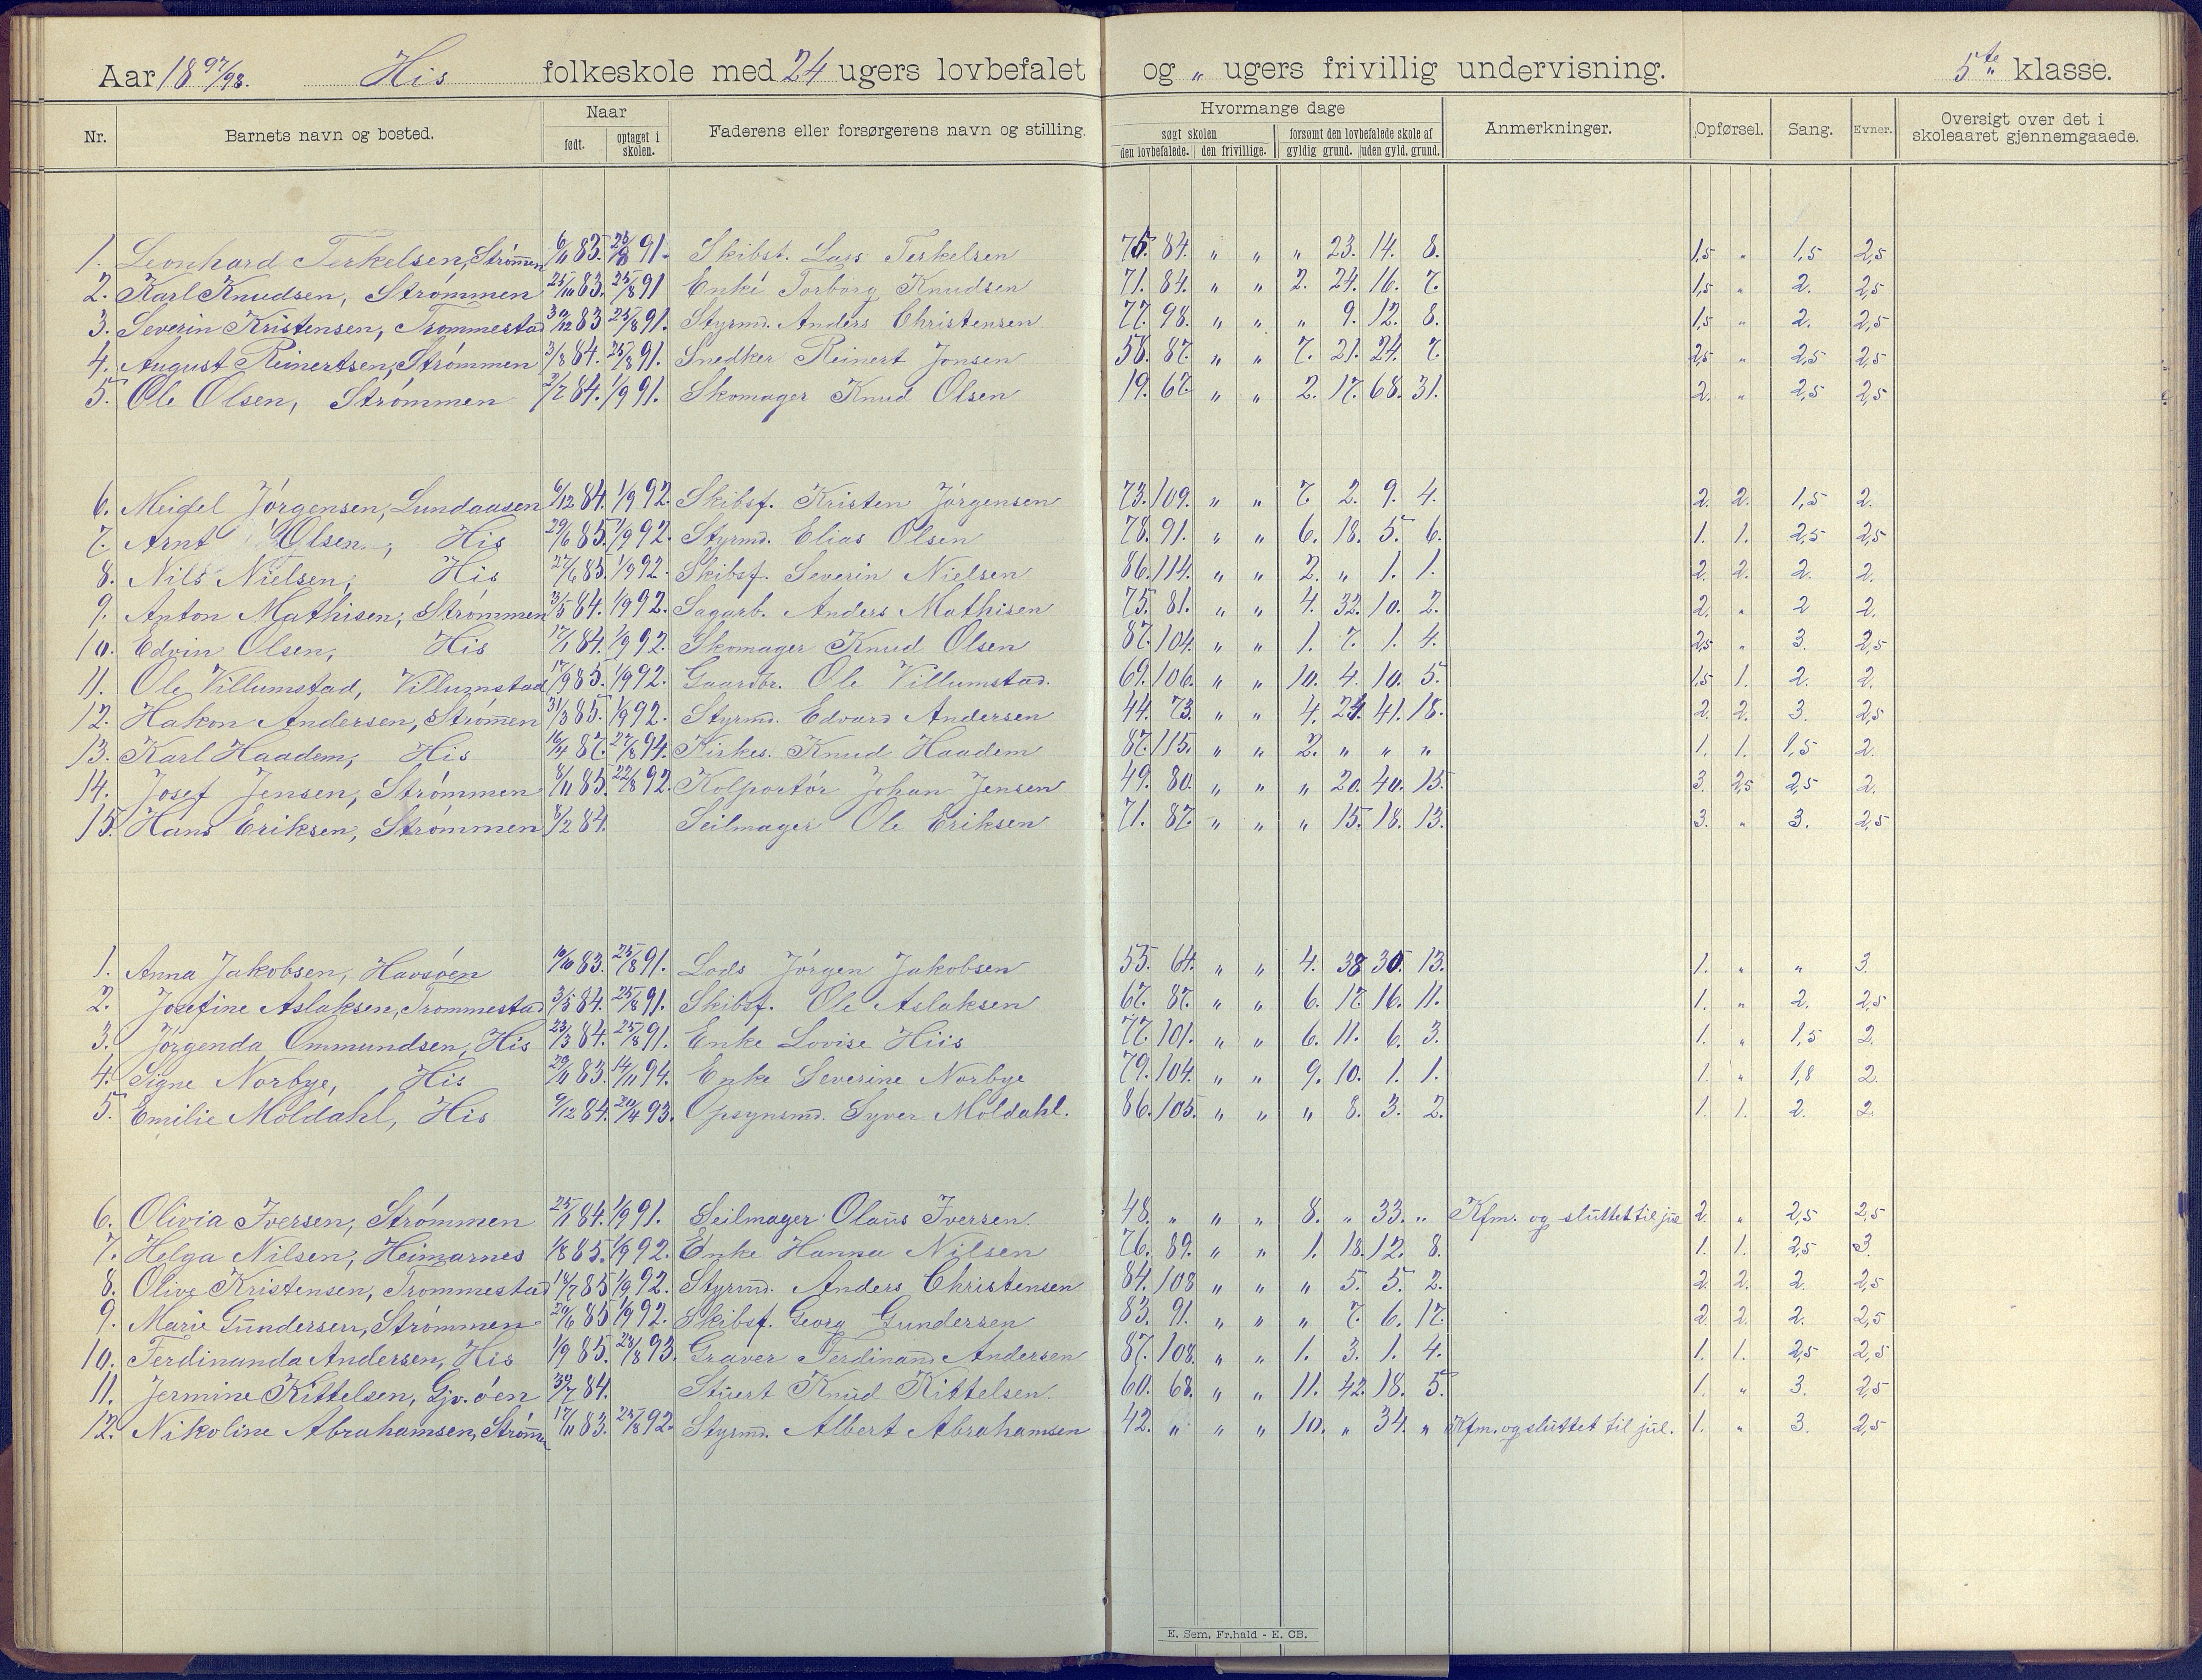 Aar 1897/98. His folkeskole med 24 ugers lovbefalet og " ugers frivillig undervisning. 5te klasse.
Nr. Barnets navn og bosted. Naar født. optaget i skolen. Faderens eller forsørgerens navn og stilling. Hvormange dage søgt skolen den lovbefalede. den frivillige. forsømt den lovbefalede skole af gyldig grund. uden gyld. grund. Anmerkninger. Opførsel. Sang. Evner. Oversigt over det i skoleaaret gjennemgaaede.
1. Leonhard Terkelsen, Strømmen 6/11 83. 25/8 91. Skibst. Lars Terkelsen 75. 84. " " " 23. 14. 8. 1,5 " 1,5 2,5
2. Karl Knudsen, Strømmen 25/10 83. 25/8 91 Enke Torborg Knudsen 71. 84. " " 2. 24. 16. 7. 1,5 " 2. 2,5
3. Severin Kristensen, Trommestad 30/12 83 25/8 91. Styrmd. Anders Christensen 77. 98. " " " 9. 12. 8. 1,5 " 2. 2,5
4. August Reinertsen, Strømmen 3/8 84. 25/8 91. Snedker Reinert Jonsen 58. 87. " " 7. 21. 24. 7. 2,5 " 2,5 2,5
5. Ole Olsen, Strømmen 2/7 84. 1/9 91. Skomager Knud Olsen 19. 67. " " 2. 17. 68. 31. 2. " 2,5 2,5
6. Meidel Jørgensen, Lundaasen 6/12 84. 1/9 92. Skibsf. Kristen Jørgensen 73. 109. " " 7. 2. 9. 4. 2. 2. 1,5 2.
7. Arnt Olsen, His 29/6 85. 1/9 92. Styrmd. Elias Olsen 78. 91. " " 6. 18. 5. 6. 1. 1. 2,5 2,5
8. Nils Nielsen, His 27/6 85. 1/9 92. Skibsf. Severin Nielsen 86. 114. " " 2. " 1. 1. 2. 2. 2. 2.
9. Anton Mathisen, Strømmen 3/5 84. 1/9 92. Sagarb. Anders Mathisen 75. 81. " " 4. 32. 10. 2. 2. " 2 2.
10. Edvin Olsen, His 17/1 84. 1/9 92. Skomager Knud Olsen 87. 104. " " 1. 7. 1. 4. 2,5 " 3. 2,5
11. Ole Villumstad, Villumstad 17/9 85. 1/9 92. Gaardbr. Ole Villumstad. 69. 106. " " 10. 4. 10. 5. 1,5 1. 2. 2.
12. Hakon Andersen, Strømmen 31/3 85. 1/9 92. Styrmd. Edvard Andersen 44. 73. " " 4. 24. 41. 18. 2. 2. 3. 2,5
13. Karl Haadem, His 16/4 87. 27/8 94. Kirkes. Knud Haadem 87. 115. " " 2. " " " 1. 1. 1,5 2.
14. Josef Jensen, Strømmen 8/11 85. 22/8 92. Kolportør Johan Jensen 49. 80. " " " 20. 40. 15. 3. 2,5 2,5 2.
15. Hans Eriksen, Strømmen 8/2 84. Seilmager Ole Eriksen 71. 87. " " " 15. 18. 13. 3. " 3. 2,5
1. Anna Jakobsen, Havsøen 10/10 83. 25/8 91. Lods Jørgen Jakobsen 55. 64. " " 4. 38 35. 13. 1. " " 3.
2. Josefine Aslaksen, Trommestad 3/5 84. 25/8 91. Skibsf. Ole Aslaksen 67. 87. " " 6. 17. 16. 11. 1. " 2. 2,5
3. Jørgenda Ommundsen, His 23/3 84. 25/8 91. Enke Lovise Hiis 77. 101. " " 6. 11. 6. 3. 1. " 1,5 2.
4. Signe Norbye, His 29/11 83. 14/11 94. Enke Severine Norbye 79. 104. " " 9. 10. 1. 1. 1. " 1,8 2.
5. Emilie Moldahl, His 9/12 84. 20/4 93. Opsynsmd. Syver Moldahl. 86. 105. " " " 8. 3. 2. 1. 1. 2. 2
6. Olivia Iversen, Strømmen 25/1 84. 1/9 91. Seilmager Olaus Iversen. 48. " " " 8. " 33. " Kfm. og sluttet til jul 2. " 2,5 2,5
7. Helga Nilsen, Heimarnes 1/8 85. 1/9 92. Enke Hanna Nilsen 76. 89. " " 1. 18. 12. 8. 1. 1. 2,5 3.
8. Olive Kristensen, Trommestad 18/7 85 1/9 92. Styrmd. Anders Christensen 84. 108 " " " 5. 5. 2. 2. 2. 2. 2,5
9. Marie Gundersen, Strømmen 20/6 85 1/9 92. Skibsf. Georg Gundersen 83. 91. " " " 7. 6. 17. 2. 2. 2. 2,5
10. Ferdinanda Andersen, His 1/9 85. 23/8 93. Graver Ferdinand Andersen 87. 108. " " 1. 3. 1. 4. 1. 1. 2,5 2,5
11. Jermine Kittelsen, Gjv. øen 30/7 84. Stuert Knud Kittelsen. 60. 68. " " 11. 42. 18. 5. 1. " 3. 2,5
12. Nikoline Abrahamsen, Strømmen 17/11 83. 25/8 92. Styrmd. Albert Abrahamsen 42. " " " 10. " 34. " Kfm. og sluttet til jul. 1. " 3. 2,5
E. Sem, Fr.hald - E. CB.